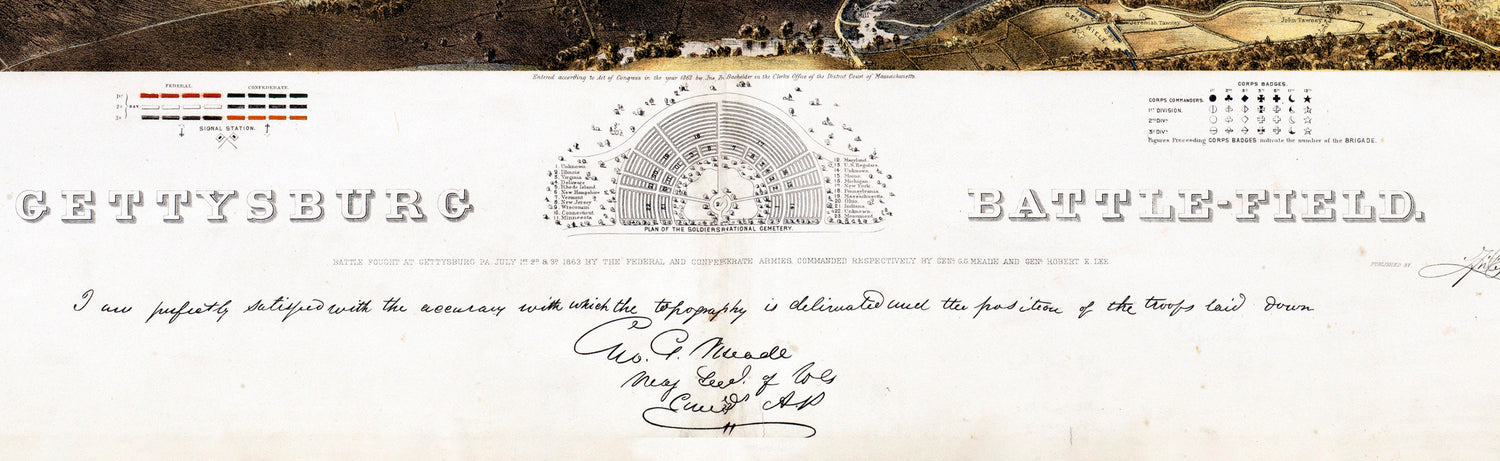 GEN. HILL
Jeremiah Tawney
John Tawney
Entered according to Act of Congress in the year 1863 by Jno. B. Bachelder in the Clerks Office of the District Court of Massachusetts.
FEDERAL. CONFEDERATE.
1st
2d DAY
3d
SIGNAL STATION.
CORPS BADGES.
1st 2nd 3d 5th 6th 11th 12th
CORPS COMMANDERS.
1st DIVISION.
2nd DIVn
3d DIVn
Figures Preceeding CORPS BADGES indicate the number of the BRIGADE.
1. Unknown
2. Illinois
3. Virginia
4. Delaware
5. Rhode Island
6. New Hampshire
7. Vermont
8. New Jersey
9. Wisconsin
10. Connecticut
11. Minnesota
12. Maryland
13. U.S. Regulars
14. Unknown
15. Maine
16. Michigan
17. New York
18. Pennsylvania
19. Massachusetts
20. Ohio
21. Indiana
22. Unknown
23. Monument
PLAN OF THE SOLDIERS NATIONAL CEMETERY.
GETTYSBURG BATTLE-FIELD.
BATTLE FOUGHT AT GETTYSBURG PA. JULY 1st 2d & 3d 1863 BY THE FEDERAL AND CONFEDERATE ARMIES, COMMANDED RESPECTIVELY BY GENl G.G. MEADE AND GENl ROBERT E. LEE
PUBLISHED BY
I am perfectly satisfied with the accuracy with which the topography is delineated and the position of the troops laid down
Geo. G. Meade
Maj Genl. of Vols
Comdg A.P